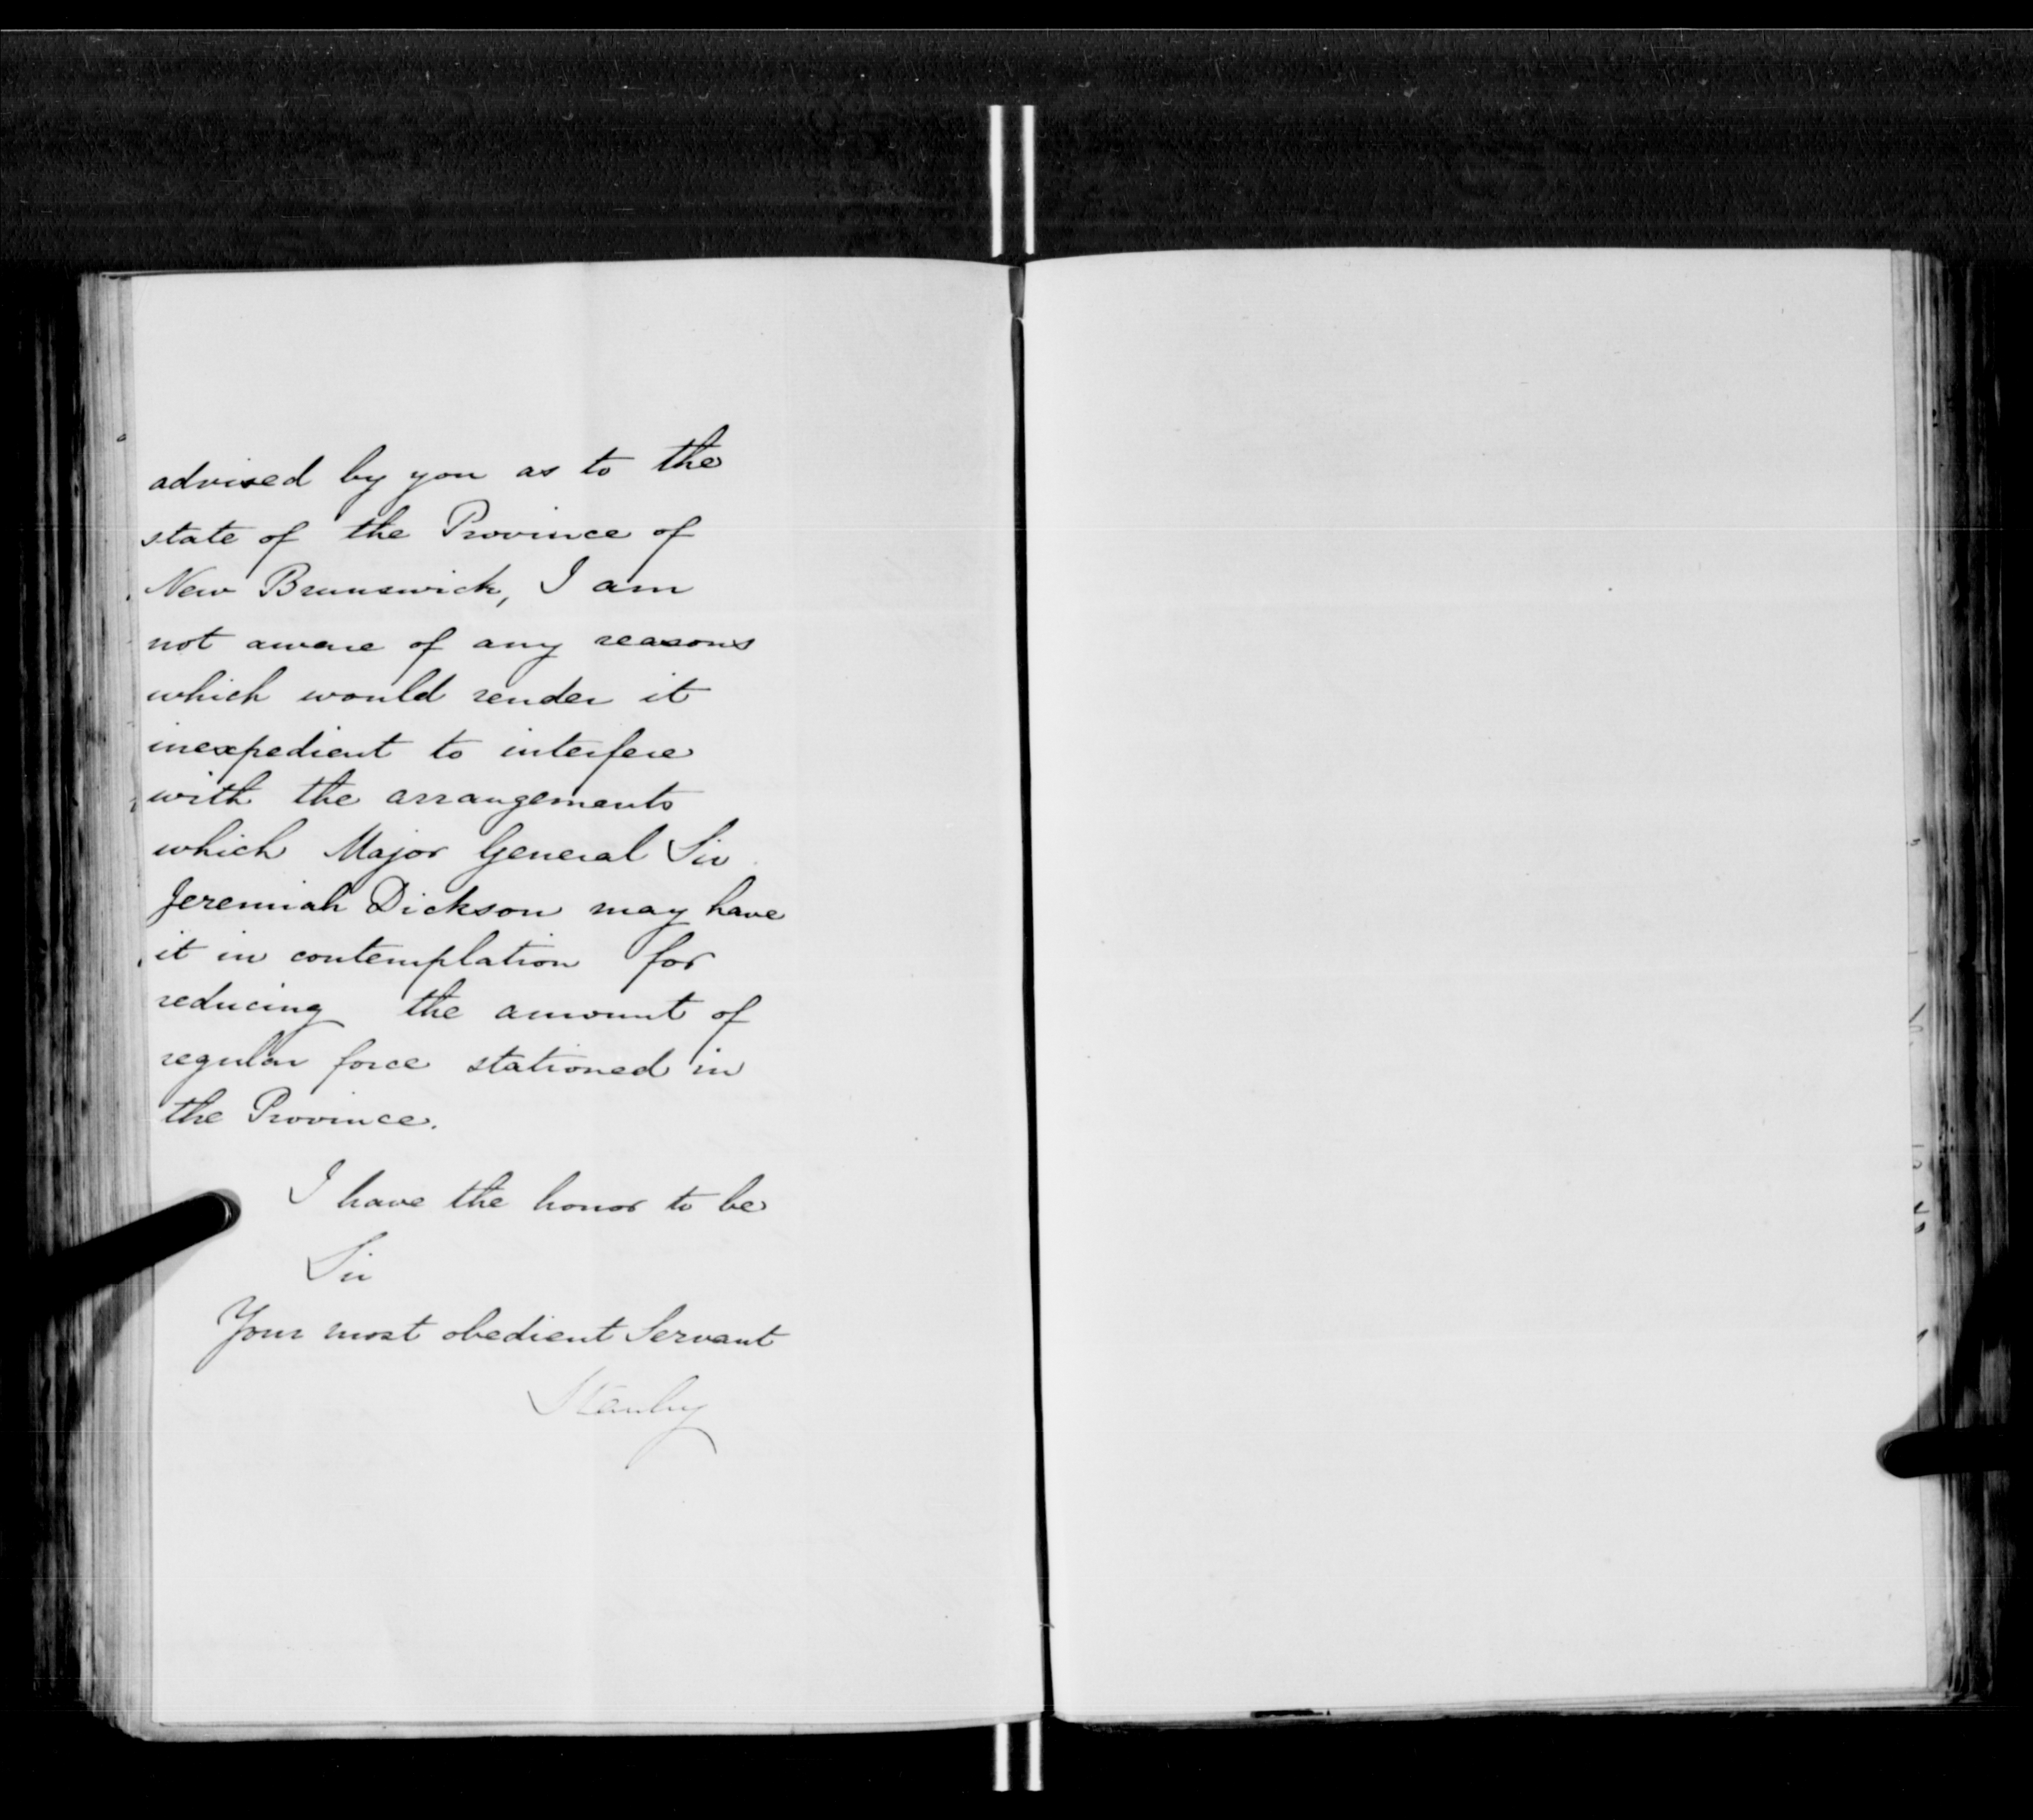 advised by you as to the
state of the Province of
New Brunswick, I am
not aware of any reasons
which would render it
inexpedient to interfere
with the arrangements
which Major General Sir
Jeremiah Dickson may have
it in contemplation for
reducing the amount of
regular force stationed in
the Province.
I have the honor to be
Sir
Your most obedient Servant
Stanley